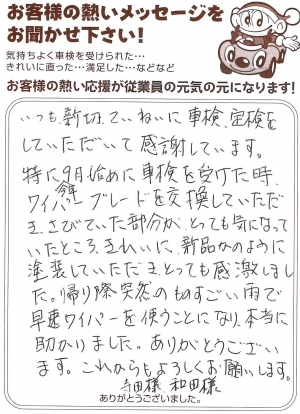 お客様の熱いメッセージを
お聞かせ下さい!
気持ちよく車検を受けられた…
きれいに直った…満足した…などなど
お客様の熱い応援が従業員の元気の元になります!
いつも親切、ていねいに車検、定検を
していただいて感謝しています。
特に9月始めに車検を受けた時、
ワイパーブレードを交換していただ
き、さびていた部分が、とっても気になって
いたところ、きれいに、新品かのように
塗装していただき、とっても感激しまし
た。帰り際突然のものすごい雨で
早速ワイパーを使うことになり、本当に
助かりました。ありがとうござい
ます。これからもよろしくお願いします。
寺田様 和田様
ありがとうございました。